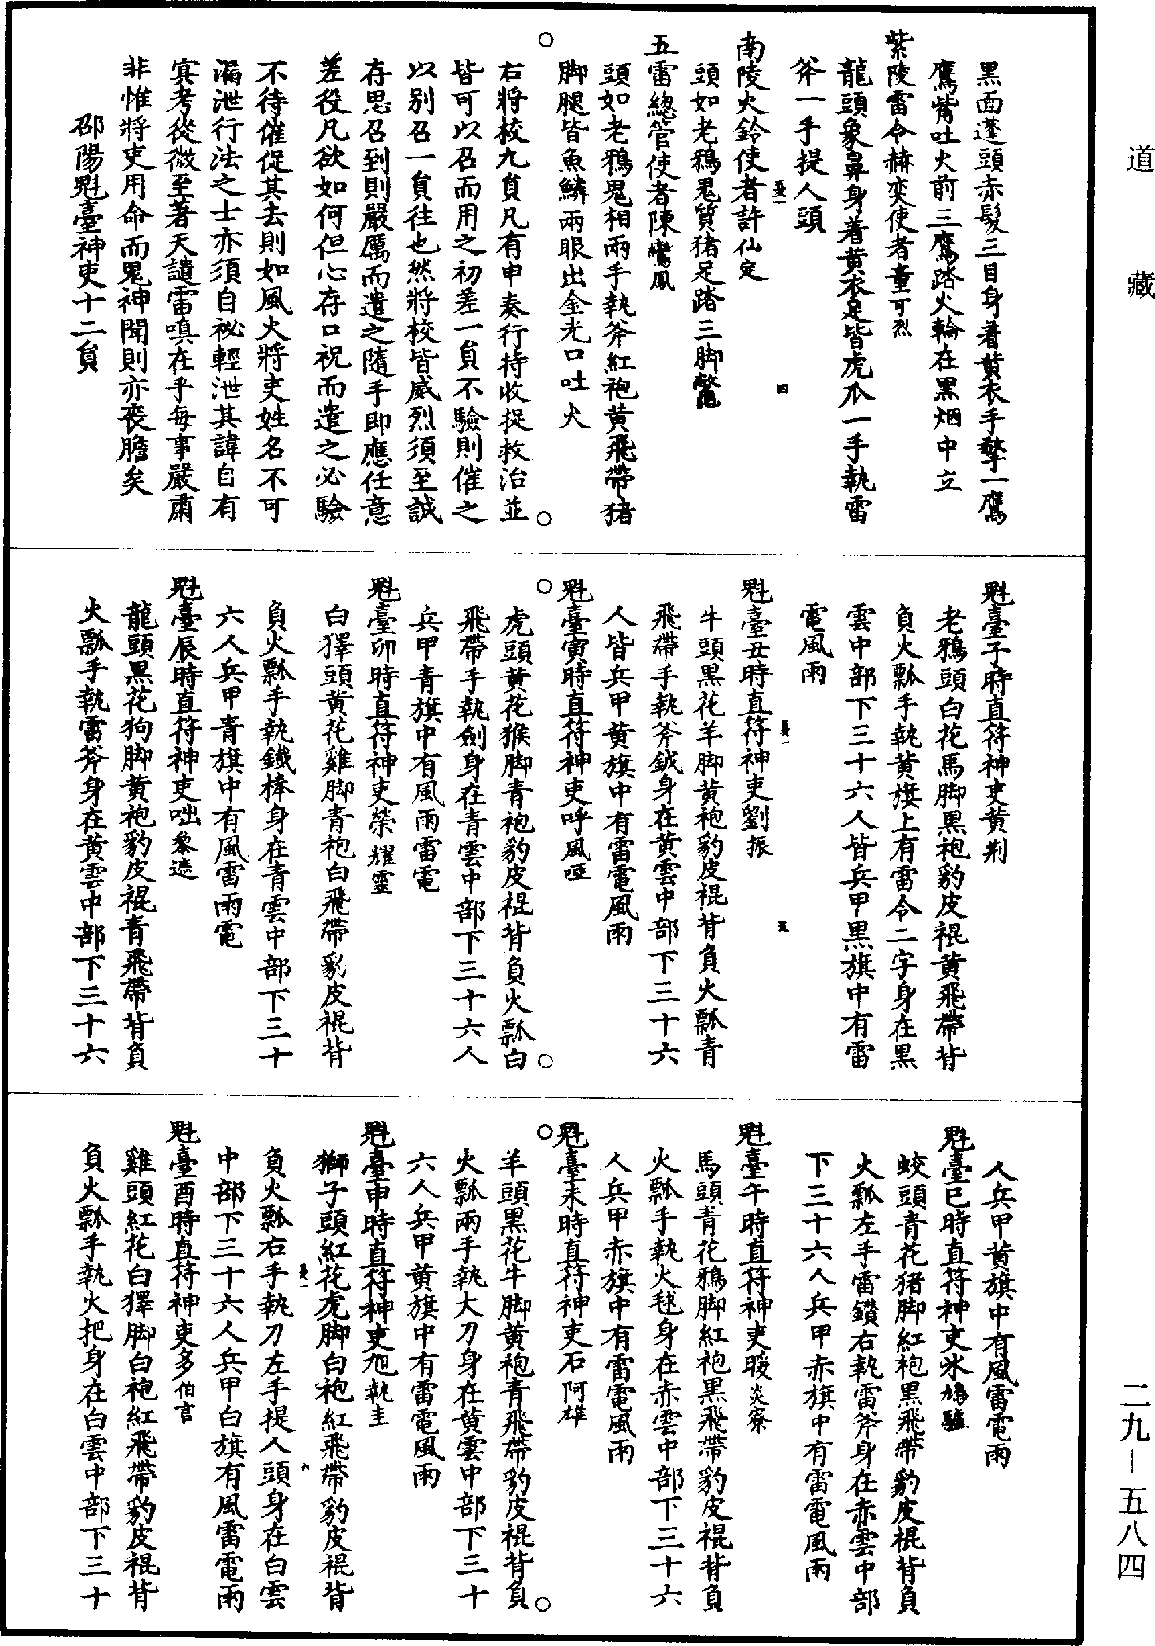 道藏
黑面蓬頭赤髮三目身着黄衣手擎一鷹
鷹觜吐火前三鷹踏火輪在黑烟中立
紫陵雷令赫奕使者童可烈
龍頭象鼻身着黄衣足皆虎爪一手執雷
斧一手提人頭
南陵火鈴使者許仙定
頭如老鴉鬼質猪足踏三脚鱉
五雷總管使者陳鸞鳳
頭如老鴉鬼相兩手執斧紅袍黄飛帶猪
脚腿皆魚鱗兩眼出金光口吐火
右將校九負凡有申奏行持收捉救治並
皆可以召而用之初差一負不驗則催之
以别召一負往也然將校皆威烈須至誠
存思召到則嚴厲而遣之隨手即應任意
差役凡欲如何但心存口祝而遣之必驗
不待催促其去則如風火將吏姓名不可
漏泄行法之士亦須自祕輕泄其諱自有
寘考從微至著天譴雷嗔在乎每事嚴肅
非惟將吏用命而鬼神聞則亦喪膽矣
邵陽魁臺神吏十二負
四
魁臺子時直符神吏黄判
老鴉頭白花馬脚黑袍豹皮裩黄飛帶背
負火瓢手執黄旗上有雷令二字身在黑
雲中部下三十六人皆兵甲黑旗中有雷
電風雨
魁臺丑時直符神吏劉振
牛頭黑花羊脚黄袍豹皮裩背負火瓢青
飛帶手執斧鉞身在黄雲中部下三十六
人皆兵甲黄旗中有雷電風雨
魁臺寅時直符神吏呼風啞
虎頭黄花猴脚青袍豹皮裩背負火瓢白
飛帶手執劍身在青雲中部下三十六人
兵甲青旗中有風雨雷電
魁臺卯時直符神吏榮耀靈
白獐頭黄花雞脚青袍白飛帶豹皮裩背
負火瓢手執鐵棒身在青雲中部下三十
六人兵甲青旗中有風雷雨電
魁臺辰時直符神吏咄黎遮
龍頭黑花狗脚黄袍豹皮裩青飛帶背負
火瓢手執雷斧身在黄雲中部下三十六
五
人兵甲黄旗中有風雷電雨
魁臺巳時直符神吏氷鳩驢
蛟頭青花猪脚紅袍黑飛帶豹皮裩背負
火瓢左手雷鑽右執雷斧身在赤雲中部
下三十六人兵甲赤旗中有雷電風雨
魁臺午時直符神吏暖炎寮
馬頭青花鴉脚紅袍黑飛帶豹皮裩背負
火瓢手執火毬身在赤雲中部下三十六
人兵甲赤旗中有雷電風雨
魁臺未時直符神吏石阿雄
羊頭黑花牛脚黄袍青飛帶豹皮裩背負
火瓢兩手執大刀身在黄雲中部下三十
六人兵甲黄旗中有雷電風雨
魁臺申時直符神吏旭執圭
獅子頭紅花虎脚白袍紅飛帶豹皮裩背
負火瓢右手執刀左手提人頭身在白雲
中部下三十六人兵甲白旗有風雷電雨
魁臺酉時直符神吏多伯言
雞頭紅花白獐脚白袍紅飛帶豹皮裩背
負火瓢手執火把身在白雲中部下三十
六
二九－五八四